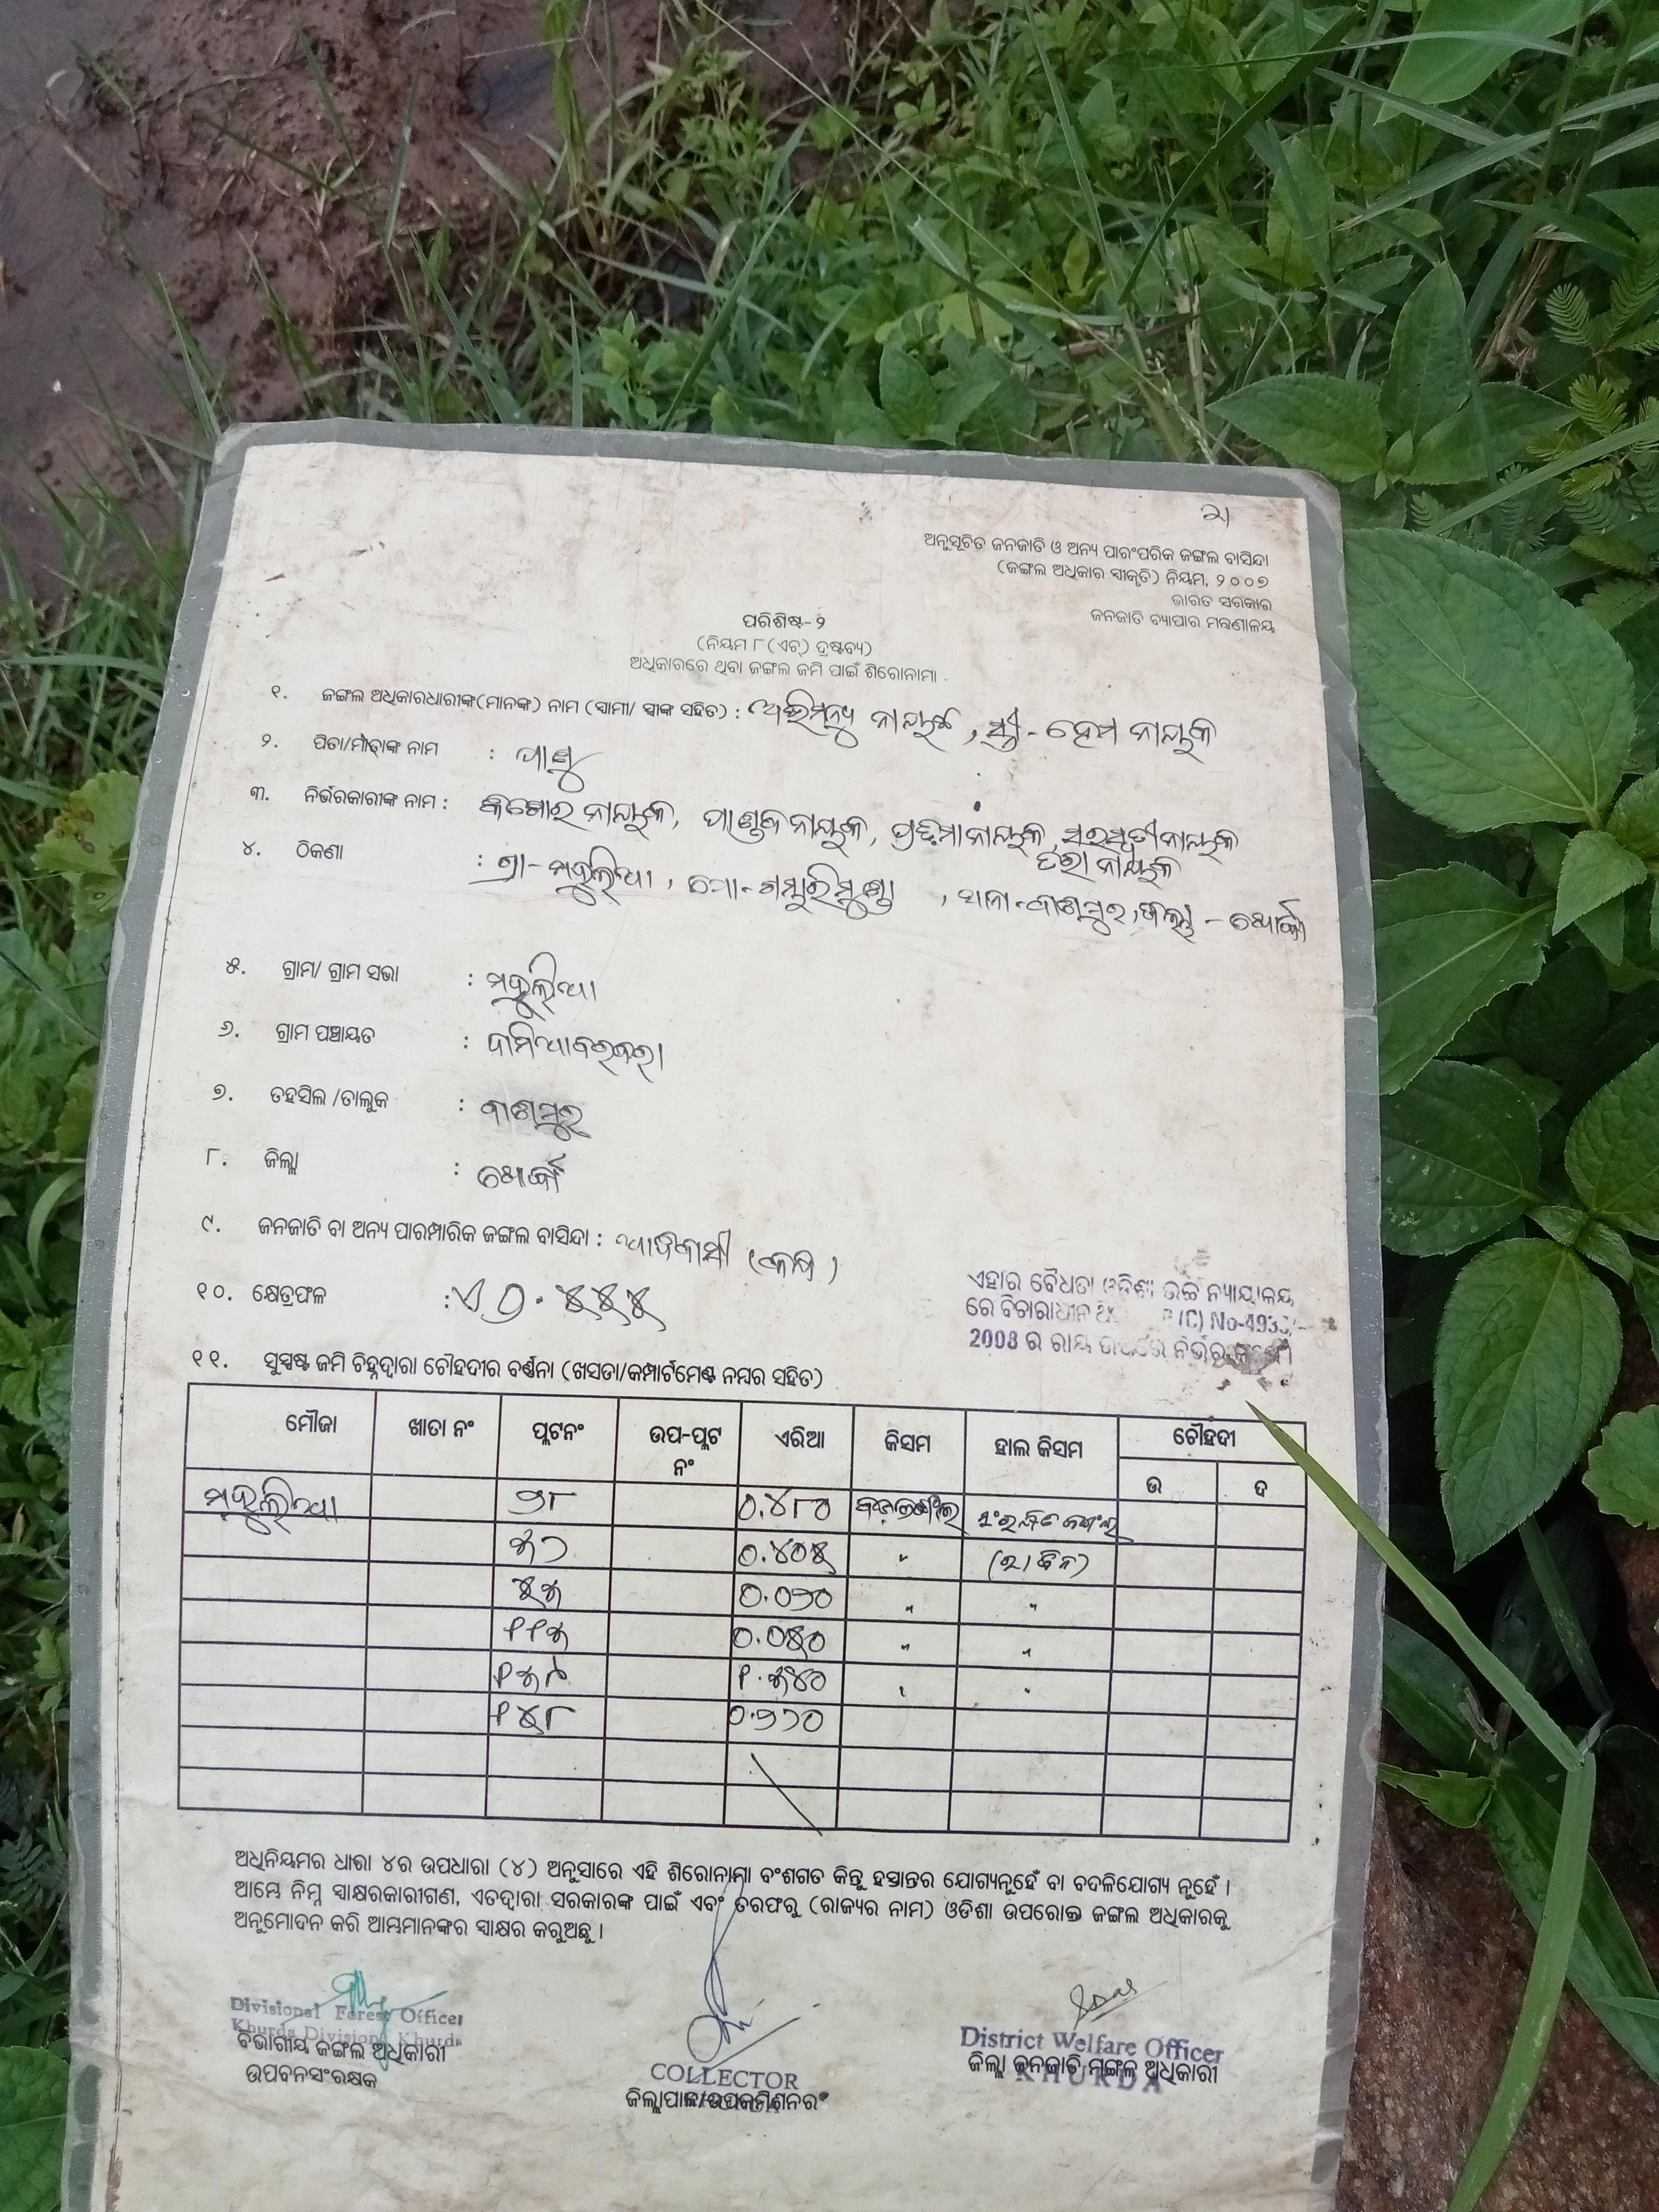 ୨।
ଅନୁସୂଚିତ ଜନଜାତି ଓ ଅନ୍ୟ ପାରଂପରିକ ଜଙ୍ଗଲ ବାସିନ୍ଦା
(ଜଙ୍ଗଲ ଅଧିକାର ସ୍ୱୀକୃତି) ନିୟମ, ୨୦୦୭
ଭାରତ ସରକାର
ଜନଜାତି ବ୍ୟାପାର ମନ୍ତ୍ରଣାଳୟ
ପରିଶିଷ୍ଟ-୨
(ନିୟମ ୮ (ଏଚ୍) ଦ୍ରଷ୍ଟବ୍ୟ)
ଅଧିକାରରେ ଥିବା ଜଙ୍ଗଲ ଜମି ପାଇଁ ଶିରୋନାମା
୧. ଜଙ୍ଗଲ ଅଧିକାରଧାରୀଙ୍କ(ମାନଙ୍କ) ନାମ (ସ୍ୱାମୀ/ ସ୍ତ୍ରୀଙ୍କ ସହିତ) : ଅଭିମନ୍ୟୁ ନାୟକ, ସ୍ତ୍ରୀ - ହେମ ନାୟକ
୨. ପିତା/ମାତାଙ୍କ ନାମ : ପାଣୁ
୩. ନିର୍ଭରକାରୀଙ୍କ ନାମ : କିଶୋର ନାୟକ, ପାଣ୍ଡବ ନାୟକ, ନାୟକ, ସରସ୍ୱତୀ ନାୟକ
ନାୟକ
୪. ଠିକଣା : ଗ୍ରା - ମହୁଲିଆ, ପୋ - , ଥାନା - ବାଣପୁର, ଜିଲ୍ଲା - ଖୋର୍ଦ୍ଧା
୫. ଗ୍ରାମ/ ଗ୍ରାମ ସଭା : ମହୁଲିଆ
୬. ଗ୍ରାମ ପଞ୍ଚାୟତ :
୭. ତହସିଲ /ତାଲୁକ : ବାଣପୁର
୮. ଜିଲ୍ଲା : ଖୋର୍ଦ୍ଧା
୯. ଜନଜାତି ବା ଅନ୍ୟ ପାରମ୍ପାରିକ ଜଙ୍ଗଲ ବାସିନ୍ଦା : ଆଦିବାସୀ
୧୦. କ୍ଷେତ୍ରଫଳ :
ଏହାର ବୈଧତା ଓଡିଶା ଉଚ୍ଚ ନ୍ୟାୟାଳୟ
ରେ ବିଚାରାଧୀନ (C) No-
2008 ର ରାୟ ଉପରେ ନିର୍ଭର
୧୧. ସୁସ୍ପଷ୍ଟ ଜମି ଚିହ୍ନଦ୍ୱାରା ଚୌହଦୀର ବର୍ଣ୍ଣନା (ଖସଡା/କମ୍ପାର୍ଟମେଣ୍ଟ ନମ୍ବର ସହିତ)
ମୌଜା ଖାତା ନଂ ପ୍ଲଟନଂ ଉପ-ପ୍ଲଟ ନଂ ଏରିଆ କିସମ ହାଲ କିସମ ଚୌହଦୀ
ଉ ଦ
ମହୁଲିଆ ୭୮ ୦.୪୮୦
୦.୪୦୫
୫୬ ୦.୦୭୦
୧୧୬ ୦.୦୫୦
୧୬୯ ୧.୬୪୦
୧୫୮
ଅଧିନିୟମର ଧାରା ୪ର ଉପଧାରା (୪) ଅନୁସାରେ ଏହି ଶିରୋନାମା ବଂଶଗତ କିନ୍ତୁ ହସ୍ତାନ୍ତର ଯୋଗ୍ୟନୁହେଁ ବା ବଦଳିଯୋଗ୍ୟ ନୁହେଁ ।
ଆମ୍ଭେ ନିମ୍ନ ସ୍ୱାକ୍ଷରକାରୀଗଣ, ଏତଦ୍ୱାରା ସରକାରଙ୍କ ପାଇଁ ଏବଂ ତରଫରୁ (ରାଜ୍ୟର ନାମ) ଓଡିଶା ଉପରୋକ୍ତ ଜଙ୍ଗଲ ଅଧିକାରକୁ
ଅନୁମୋଦନ କରି ଆମ୍ଭମାନଙ୍କର ସ୍ୱାକ୍ଷର କରୁଅଛୁ ।
Divisional Forest Officer
Khurda Division, Khurda
ବିଭାଗୀୟ ଜଙ୍ଗଲ ଅଧିକାରୀ
ଉପବନସଂରକ୍ଷକ
COLLECTOR
ଜିଲ୍ଲାପାଳ/ଉପକମିଶନର
District Welfare Officer
ଜିଲ୍ଲା ଜନଜାତି ମଙ୍ଗଳ ଅଧିକାରୀ
KHURDA